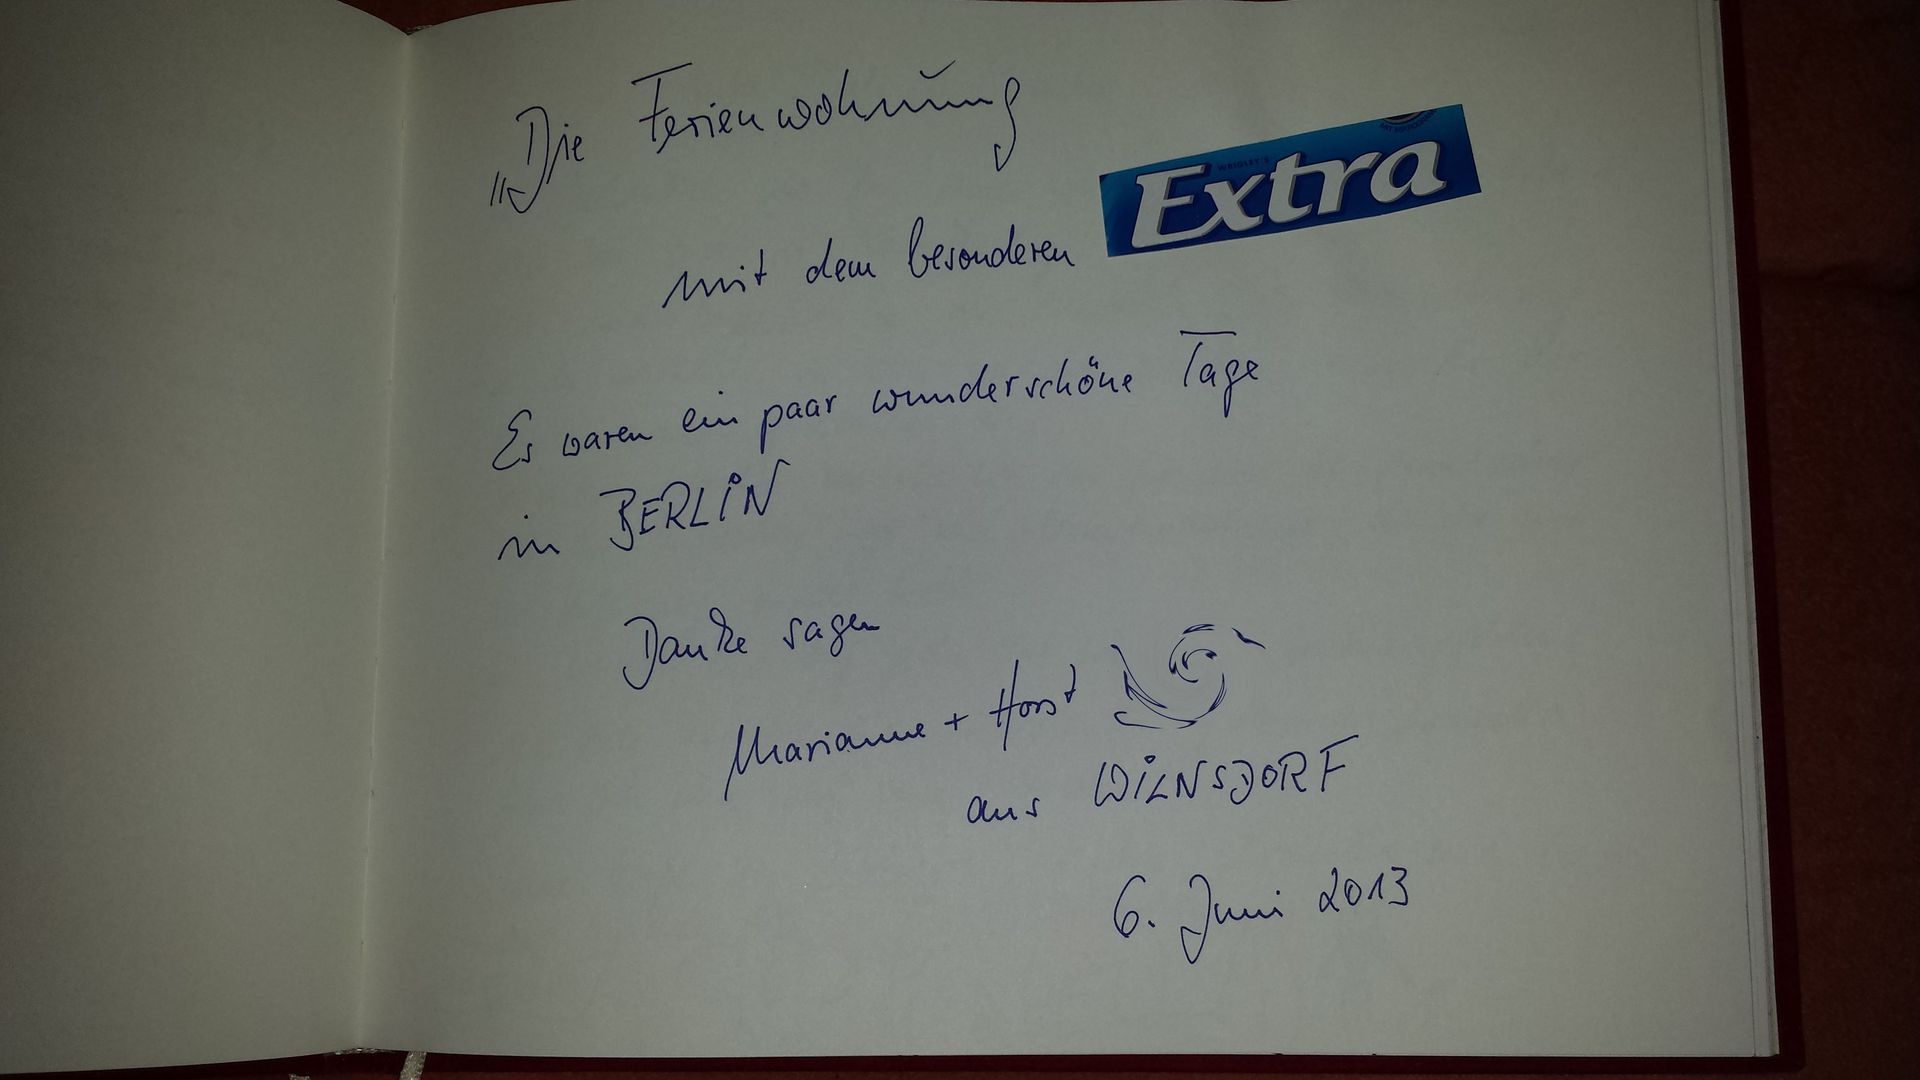 „Die Ferienwohnung
mit dem besonderen Extra
Es waren ein paar wunderschöne Tage
in BERLIN
Danke sagen
Marianne + Horst
aus WILNSDORF
6. Juni 2013